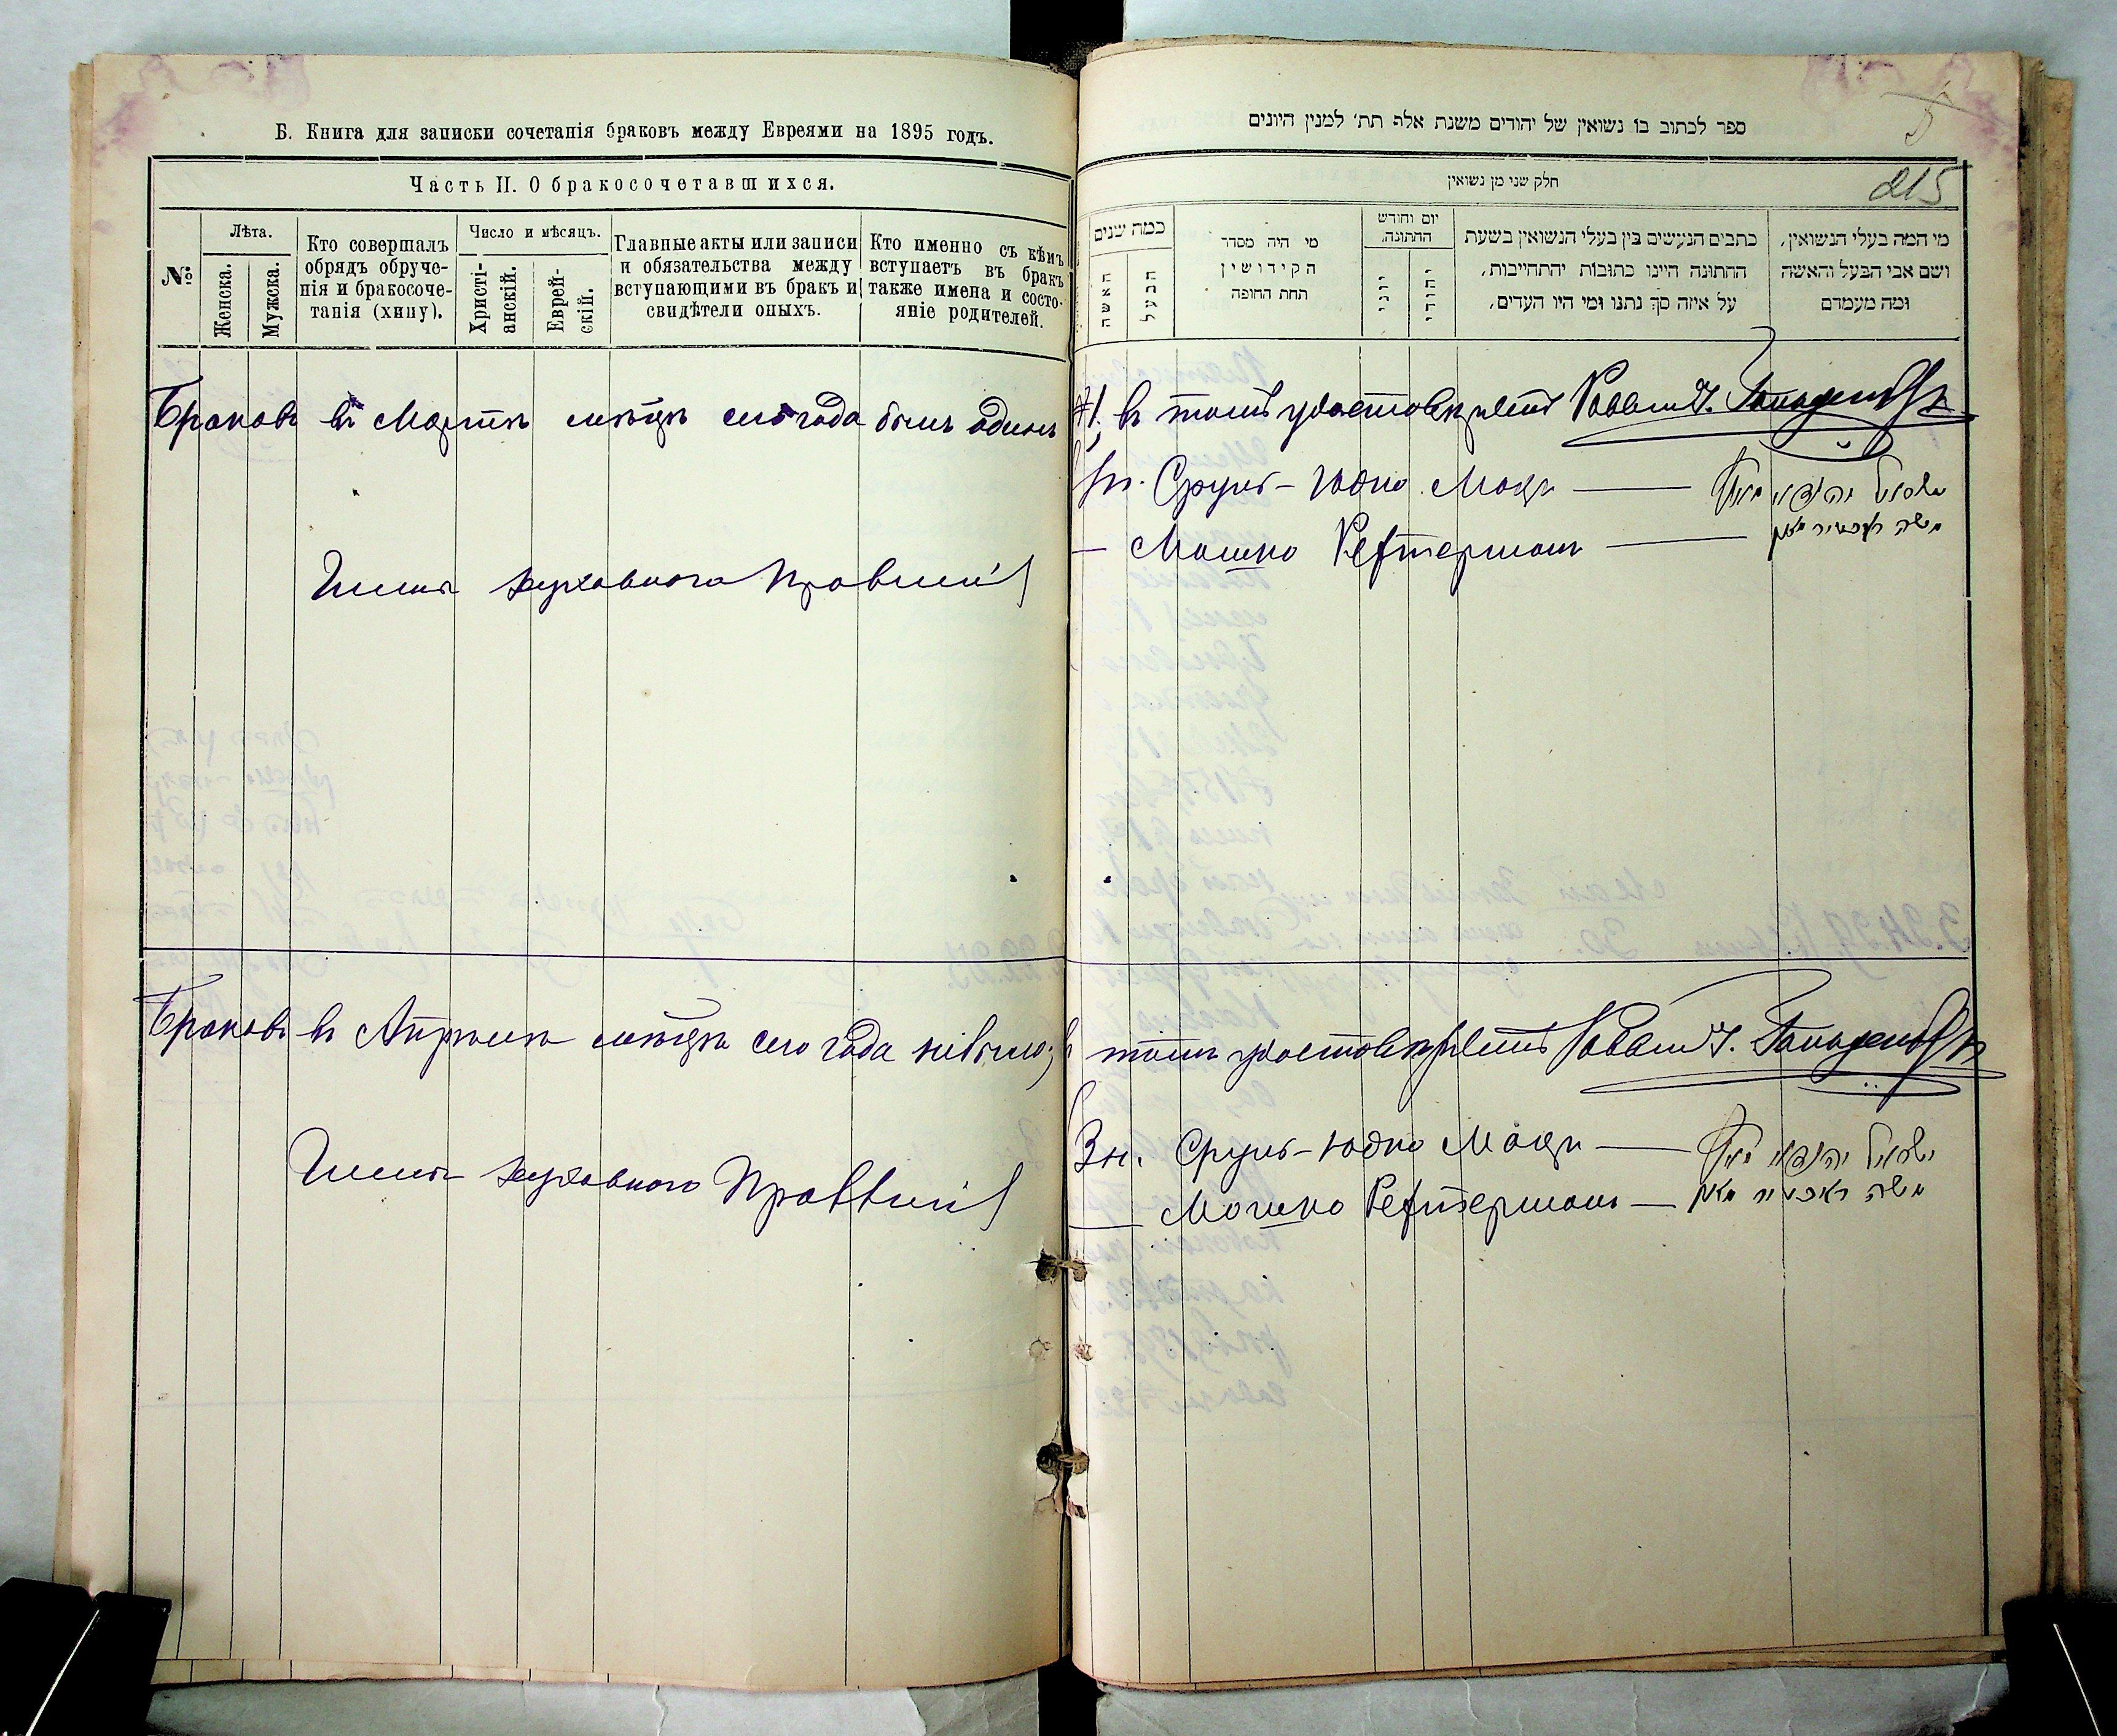 Б. Книга для записки сочетанія браковъ между Евреями на 1895 годъ.
Часть II. О бракосочетавшихся.
№
Лѣта.
Женска.
Мужска.
Кто совершалъ
обрядъ обруче-
нія и бракосоче-
танія (хипу).
Число и мѣсяцъ.
Христі-
анскій.
Еврей-
скій.
Главные акты или записи
и обязательства между
вступающими въ бракъ и
свидѣтели оныхъ.
Кто именно съ кѣмъ
вступаетъ въ бракъ
также имена и состо-
яніе родителей.
Браковъ въ Мартѣ мѣсяцѣ сего года былъ одинъ
Члены духовнаго Правленія
Браковъ въ Апрѣлѣ мѣсяцѣ сего года небыло;
Члены духовнаго Правленія
ספר לכתוב בו נשואין של יהודים משנת אלף תת׳ למנין היונים
5
חלק שני מן נשואין
215
כמת שנים
האשה
הבעל
מי היה מסדר
הקידושין
תחת החופה
יום וחודש
החתונה,
יווני
יהודי
כתבים הנעשים בין בעלי הנשואין בשעת
החתונה היינו כתובות יהתחייבות,
על איזה סך נתנו ומי היו העדים,
מי המה בעלי הנשואין,
ושם אבי הבעל והאשה
ומה מעמדם
#1. въ томъ удостовѣряетъ Раввинъ
Сруль-Юдко
— Мошко Рейтерманъ —
въ томъ удостовѣряетъ Раввинъ
Сруль-Юдко
— Мошко Рейтерманъ —